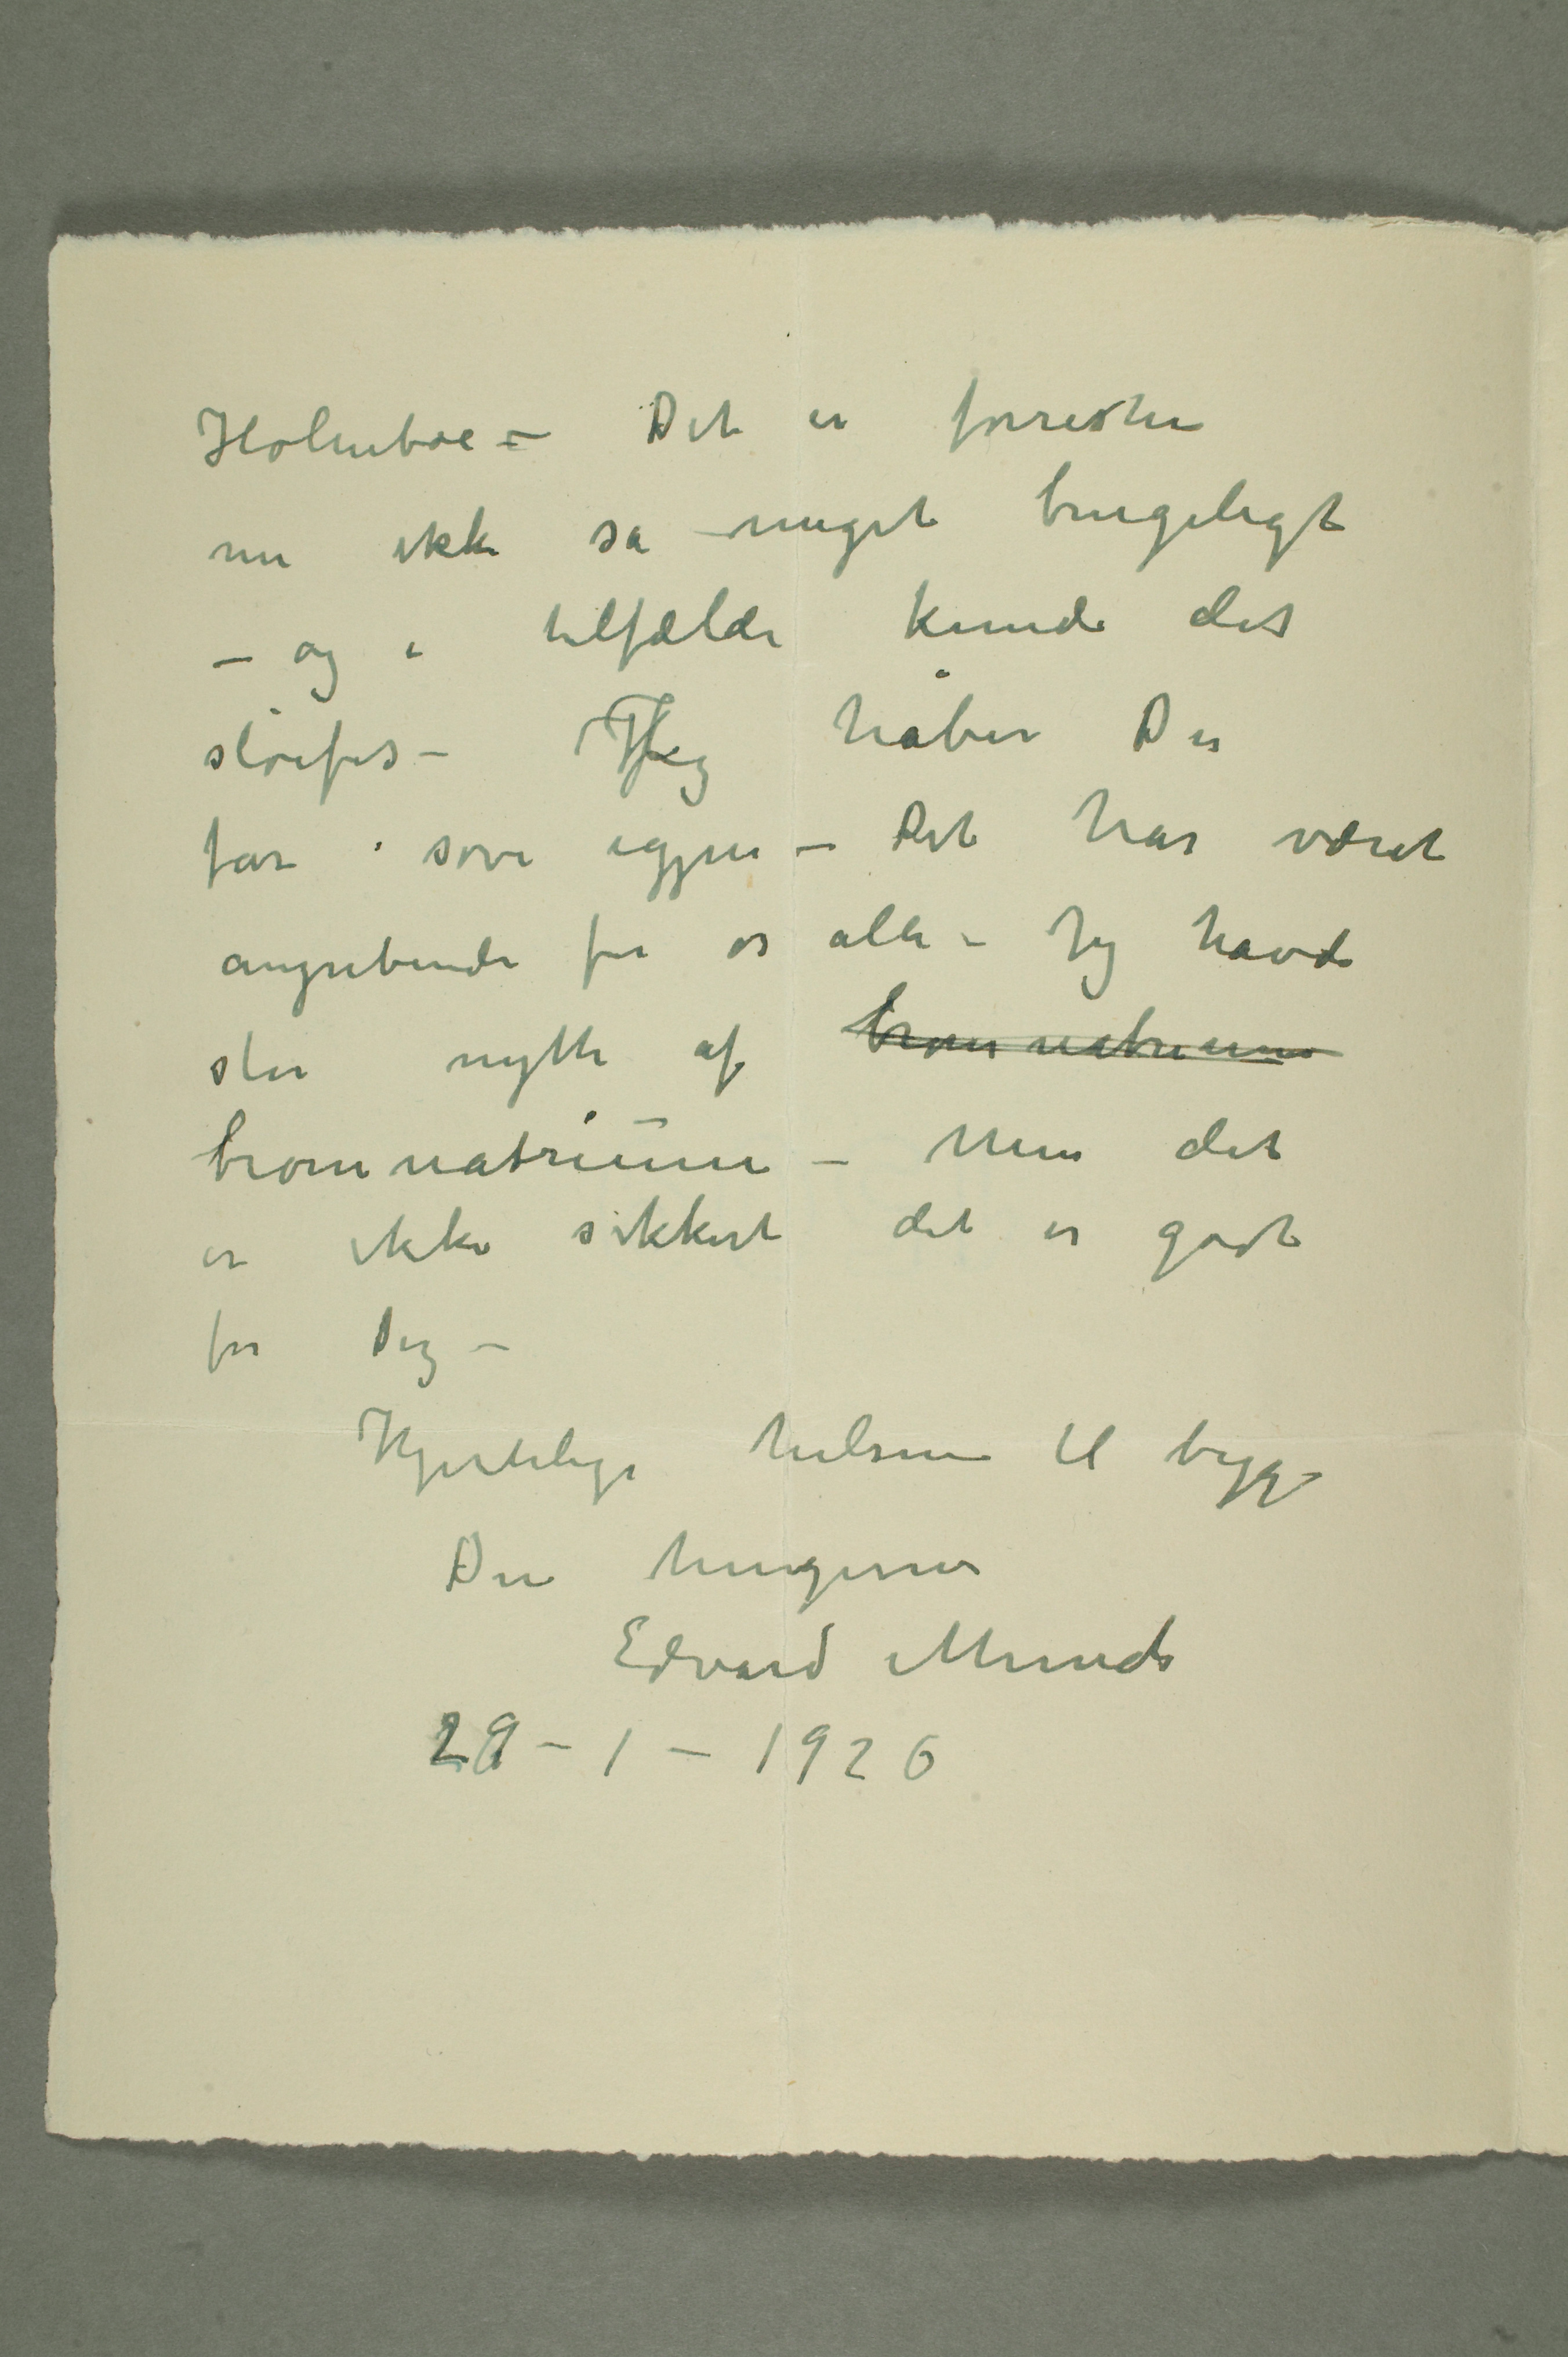 Holmboe – Det er forresten
nu ikke så meget brugeligt
– og i tilfælde kunde det
sløifes – Jeg håber Du
får sove igjen – Det har været
angribende for os alle – Jeg havde
stor nytte af bromnatrium
bromnatrium – Men det
er ikke sikkert det er godt
for Dig –
Hjertelige hilsener til begge
Din hengivne
Edvard Munch
29 – 1 – 1926